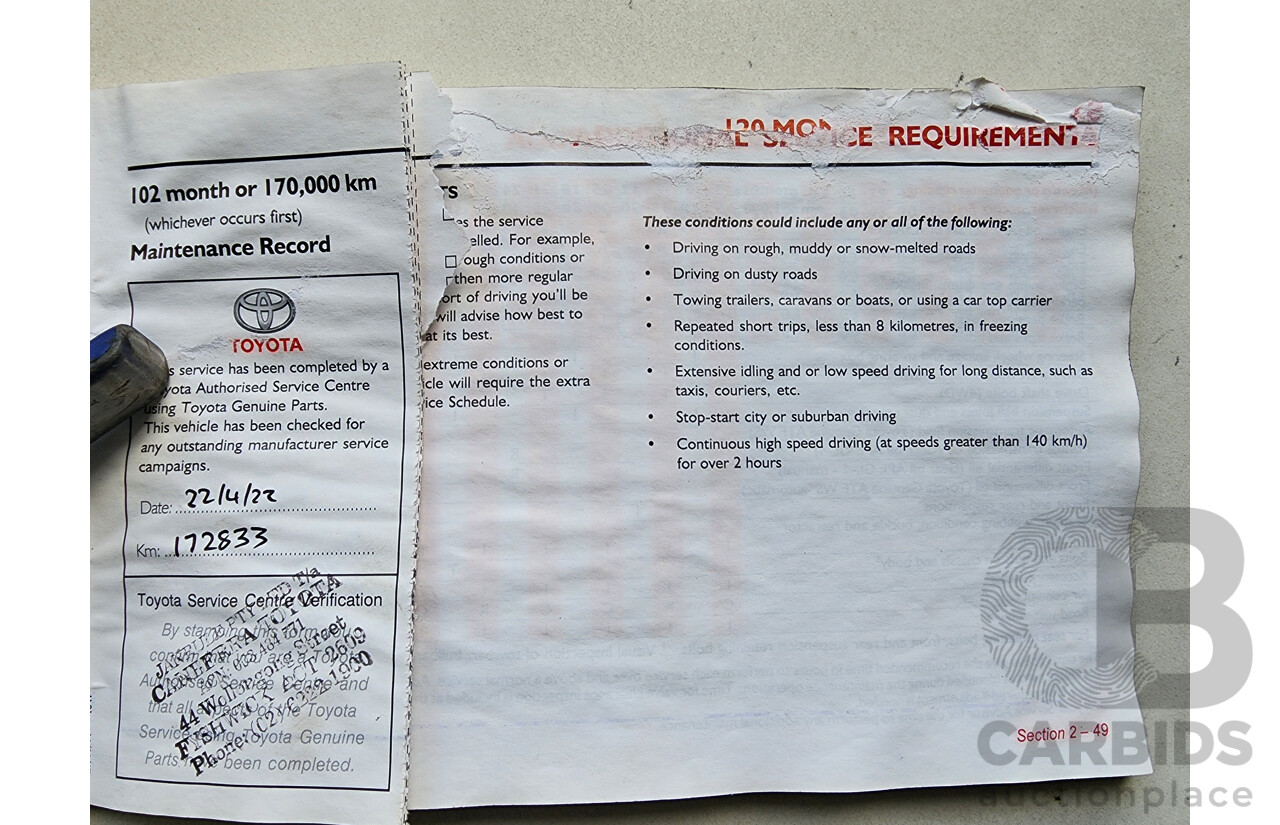 102 month or 170,000 km
(whichever occurs first)
Maintenance Record
TOYOTA
service has been completed by a
Authorised Service Centre
using Toyota Genuine Parts.
This vehicle has been checked for
any outstanding manufacturer service
campaigns.
Date: 22/4/22
Km: 172833
Toyota Service Centre Verification
By stamping this form
Authorised Service Centre and
that all aspects of the Toyota
Service using Toyota Genuine
Parts have been completed.
CANBERRA TOYOTA
44 Wollongong Street
FYSHWICK ACT 2609
Phone: (02)
REQUIREMENT
the service
For example,
conditions or
then more regular
of driving you'll be
will advise how best to
at its best.
extreme conditions or
will require the extra
Schedule.
These conditions could include any or all of the following:
• Driving on rough, muddy or snow-melted roads
• Driving on dusty roads
• Towing trailers, caravans or boats, or using a car top carrier
• Repeated short trips, less than 8 kilometres, in freezing
conditions.
• Extensive idling and or low speed driving for long distance, such as
taxis, couriers, etc.
• Stop-start city or suburban driving
• Continuous high speed driving (at speeds greater than 140 km/h)
for over 2 hours
Section 2 – 49
CARBIDS
auctionplace